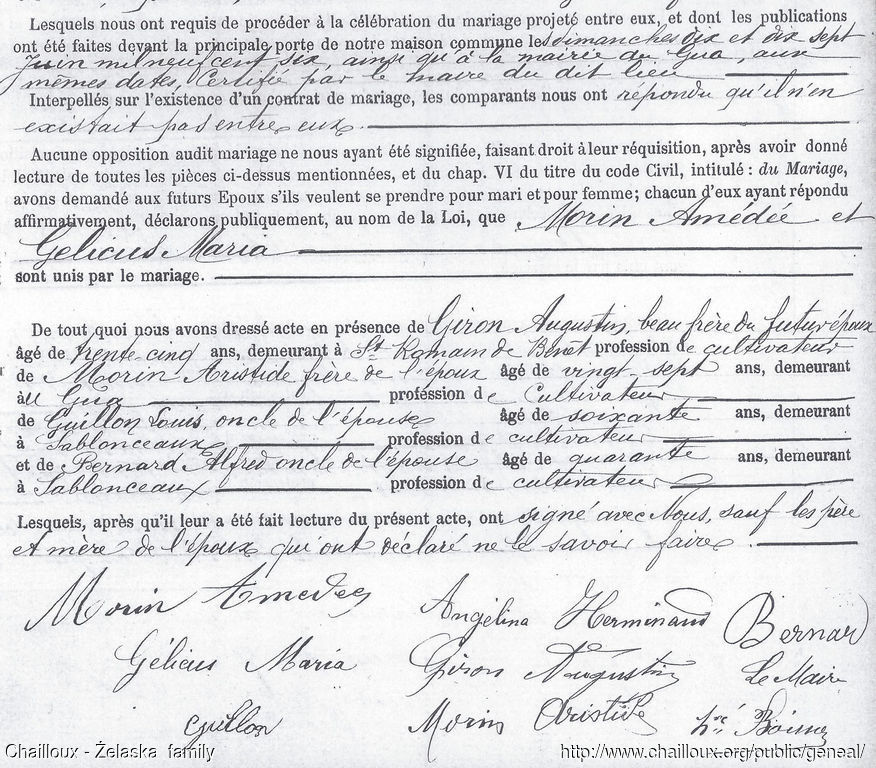 Lesquels nous ont requis de procéder à la célébration du mariage projeté entre eux, et dont les publications
ont été faites devant la principale porte de notre maison commune les dimanches dix et dix sept
Juin mil neuf cent six, ainsi qu'à la mairie du Gua, aux
mêmes dates, Certifié par le maire du dit lieu
Interpellés sur l'existence d'un contrat de mariage, les comparants nous ont répondu qu'il n'en
existait pas entre eux.
Aucune opposition audit mariage ne nous ayant été signifiée, faisant droit à leur réquisition, après avoir donné
lecture de toutes les pièces ci-dessus mentionnées, et du chap. VI du titre du code Civil, intitulé : du Mariage,
avons demandé aux futurs Epoux s'ils veulent se prendre pour mari et pour femme ; chacun d'eux ayant répondu
affirmativement, déclarons publiquement, au nom de la Loi, que Morin Amédée et
Gelicus Maria
sont unis par le mariage.
De tout quoi nous avons dressé acte en présence de Giron Augustin, beau frère du futur époux
âgé de trente cinq ans, demeurant à St Romain de Benet profession de cultivateur
de Morin Aristide frère de l'époux âgé de vingt-sept ans, demeurant
au Gua profession de Cultivateur
de Guillon Louis, oncle de l'épouse âgé de soixante ans, demeurant
à Sablonceaux profession de cultivateur
et de Bernard Alfred oncle de l'épouse âgé de quarante ans, demeurant
à Sablonceaux profession de cultivateur
Lesquels, après qu'il leur a été fait lecture du présent acte, ont signé avec Nous, sauf les père
et mère de l'époux qui ont déclaré ne le savoir faire.
Morin Amedée Angélina Herminaud Bernard
Gélicus Maria Giron Augustin Le Maire
Guillon Morin Aristide
Chailloux - Żelaska family http://www.chailloux.org/public/geneal/